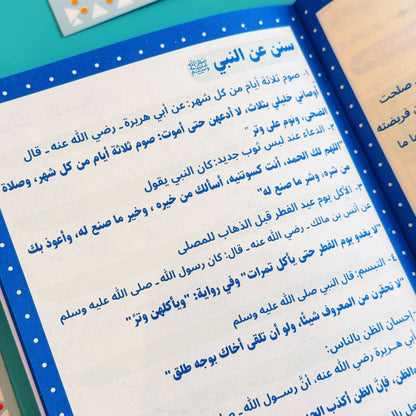 سنن عن النبي ﷺ
١- صوم ثلاثة أيام من كل شهر: عن أبي هريرة - رضي الله عنه - قال
أوصاني خليلي بثلاث، لا أدعهن حتى أموت: صوم ثلاثة أيام من كل شهر، وصلاة
الضحى، ونوم على وتر"
٢- الدعاء عند لبس ثوب جديد: كان النبي يقول
"اللهم لك الحمد، أنت كسوتنيه، أسألك من خيره، وخير ما صنع له، وأعوذ بك
من شره، وشر ما صنع له"
٣- الأكل يوم عيد الفطر قبل الذهاب للمصلى
عن أنس بن مالك - رضي الله عنه - قال: كان رسول الله - صلى الله عليه وسلم
"لا يغدو يوم الفطر حتى يأكل تمرات" وفي رواية: "ويأكلهن وترً"
٤- التبسم: قال النبي صلى الله عليه وسلم
"لا تحقرن من المعروف شيئًا، ولو أن تلقى أخاك بوجه طلق"
إحسان الظن بالناس:
أبي هريرة رضي الله عنه، أنَّ رسول الله - صلى
والظن، فإنَّ الظن أكذب
صلحت
فريضته